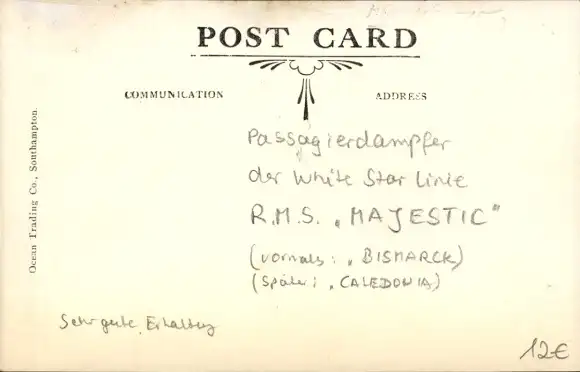 POST CARD
COMMUNICATION
ADDRESS
Ocean Trading Co., Southampton.
Passagierdampfer
der White Star Linie
R.M.S. „MAJESTIC"
(vormals: „BISMARCK)
(später: „CALEDONIA)
Sehr gute Erhaltung
12€